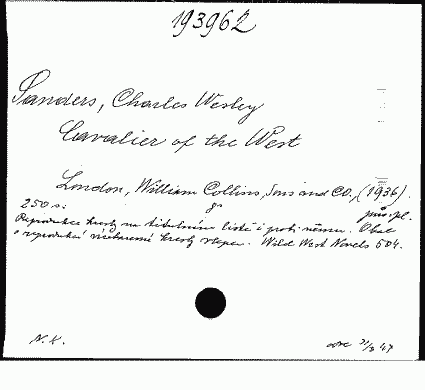 193962
Sanders, Charles Wesley
Cavalier of the West
London, William Collins, Sons and Co., (1936).
250 s. 8° přív. pl.
Reprodukce kresby na titulním listě i proti němu. Obal
s reprodukcí vícebarevné kresby. Wild West Novels 504.
N. K. 31/3 47